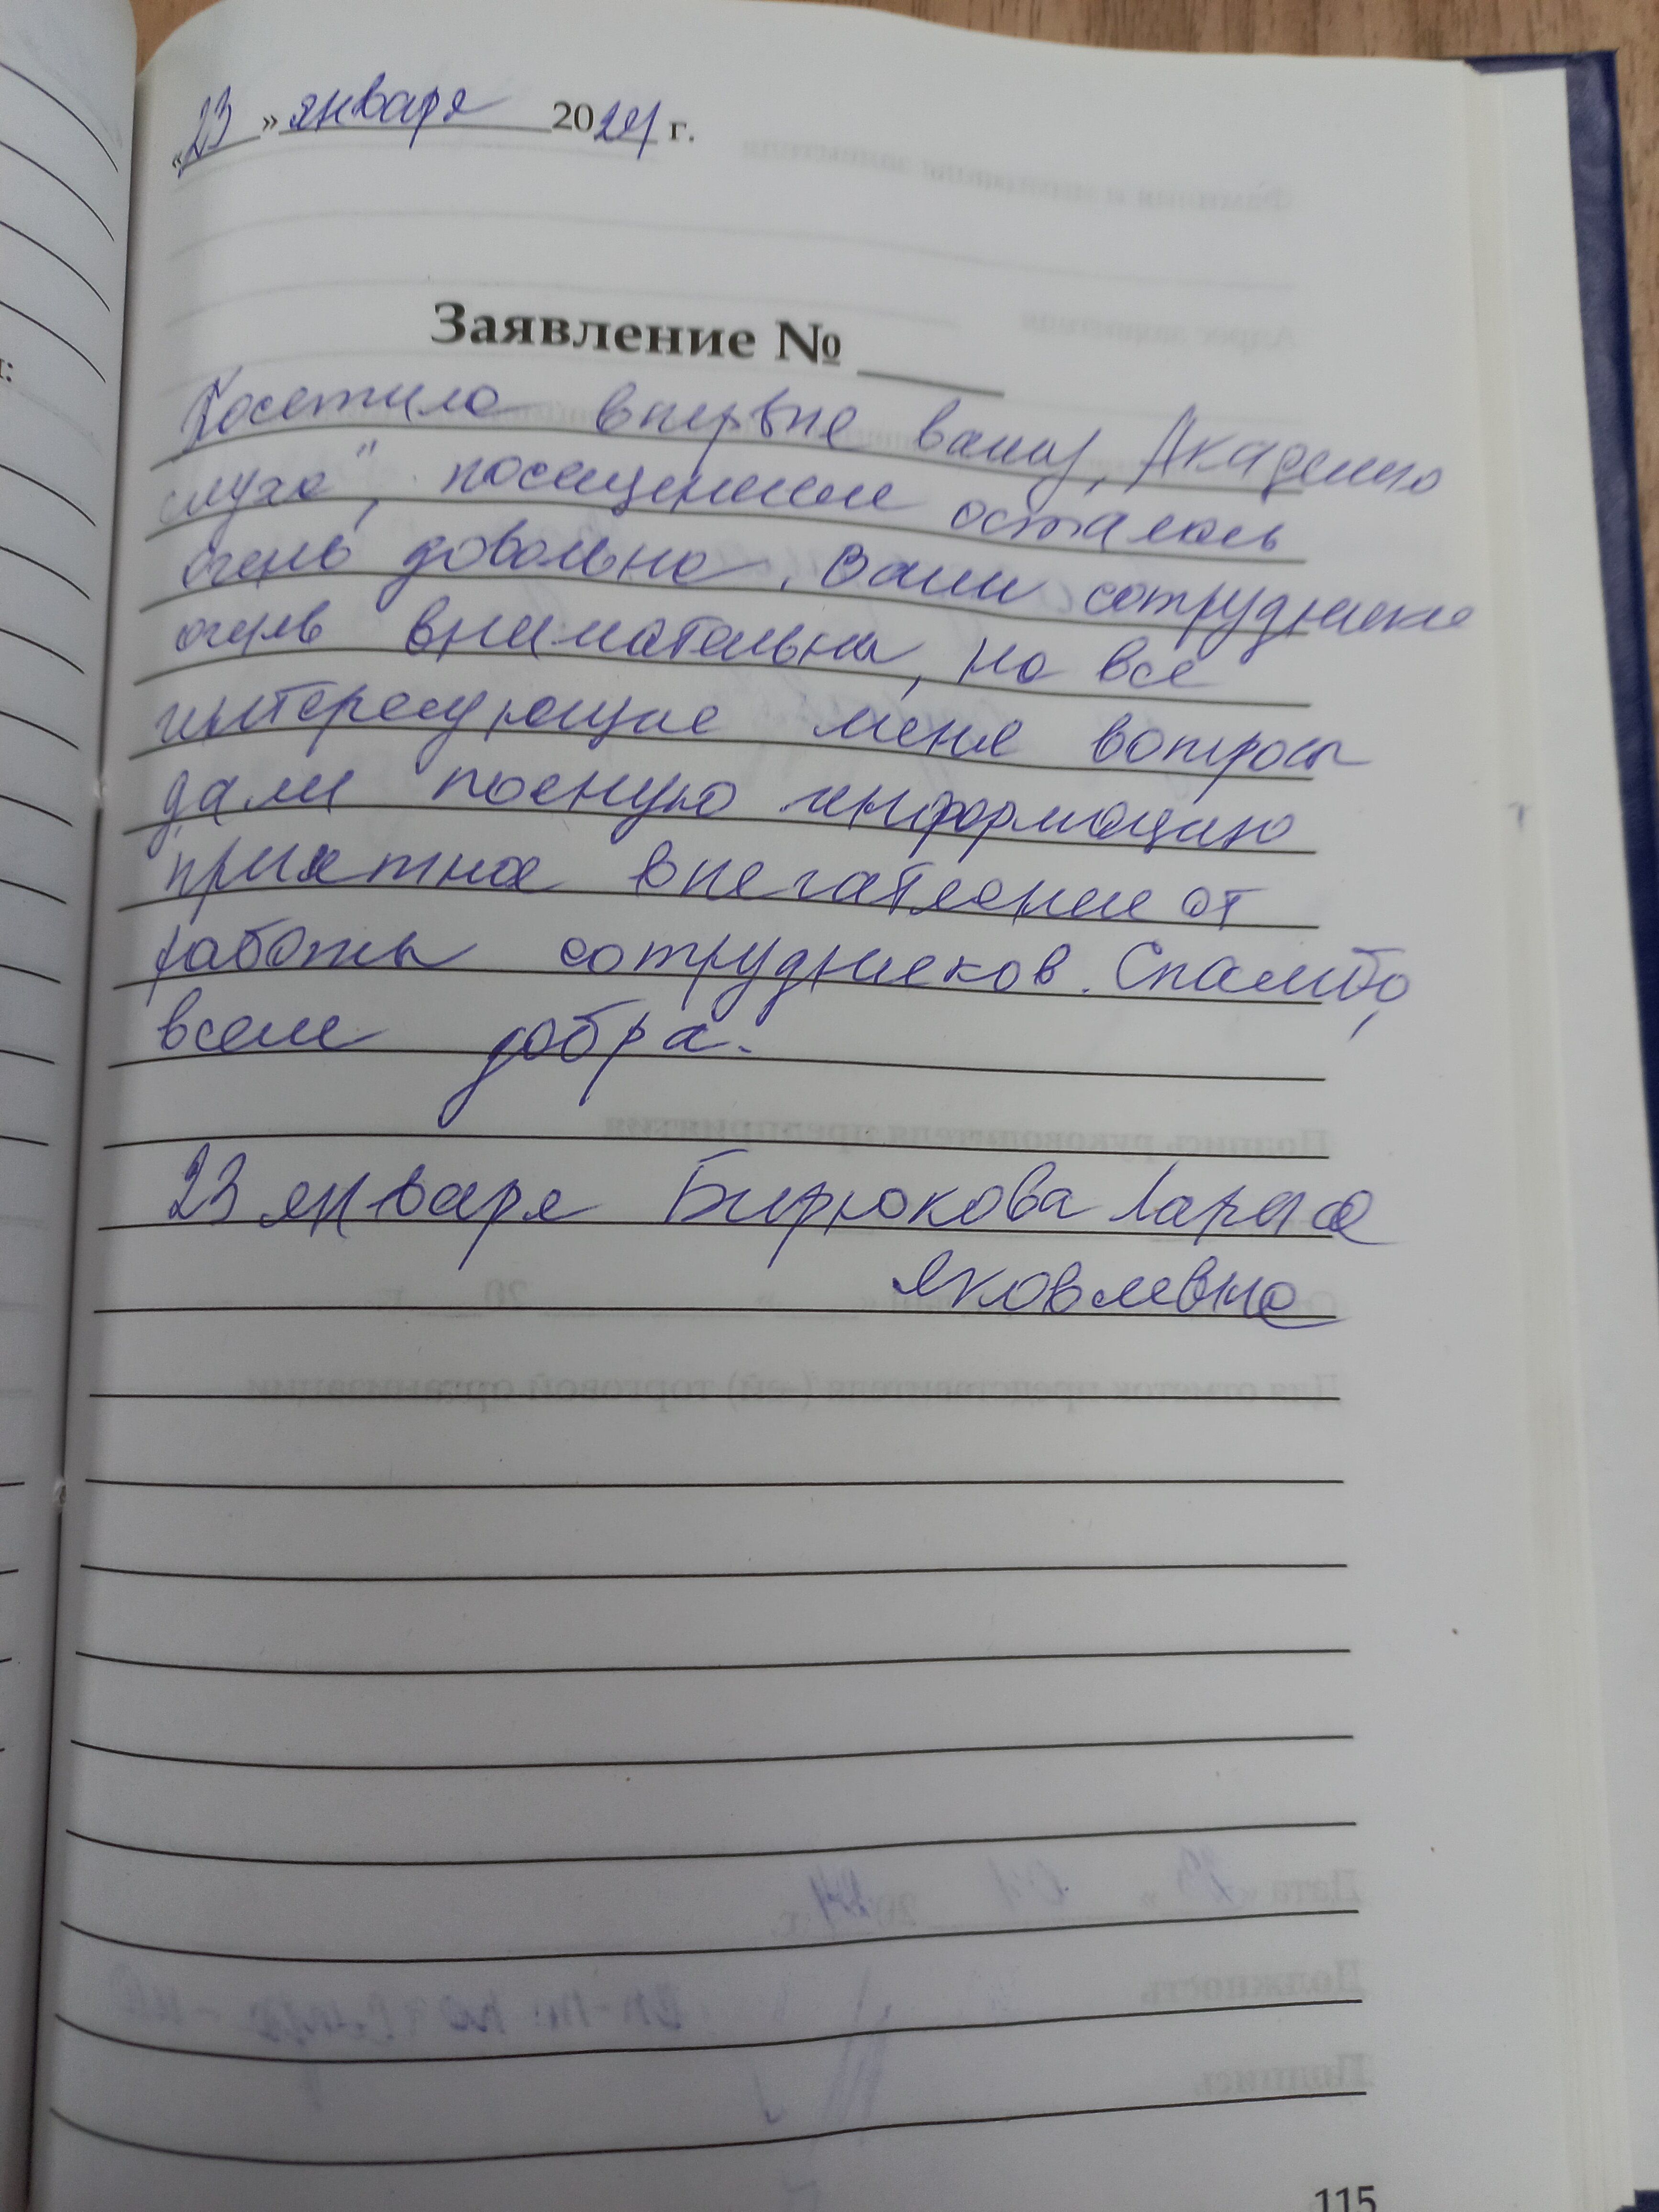 «23» января 2024 г.
Заявление №
Посетила впервые вашу „Академию
слуха", посещением осталась
очень довольна. Ваши сотрудники
очень внимательны, на все
интересующие меня вопросы
дали полную информацию
приятное впечатление от
работы сотрудников. Спасибо,
всем добра.
23 января Бирюкова Лариса
Яковлевна
115